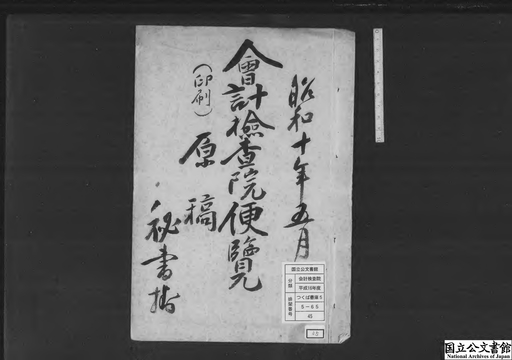 昭和十年五月
會計檢查院便覽
(印刷)
原稿
秘書掛
国立公文書館
分類
会計検査院
平成15年度
つくば書庫5
排架番号
5-65
45
国立公文書館
National Archives of Japan